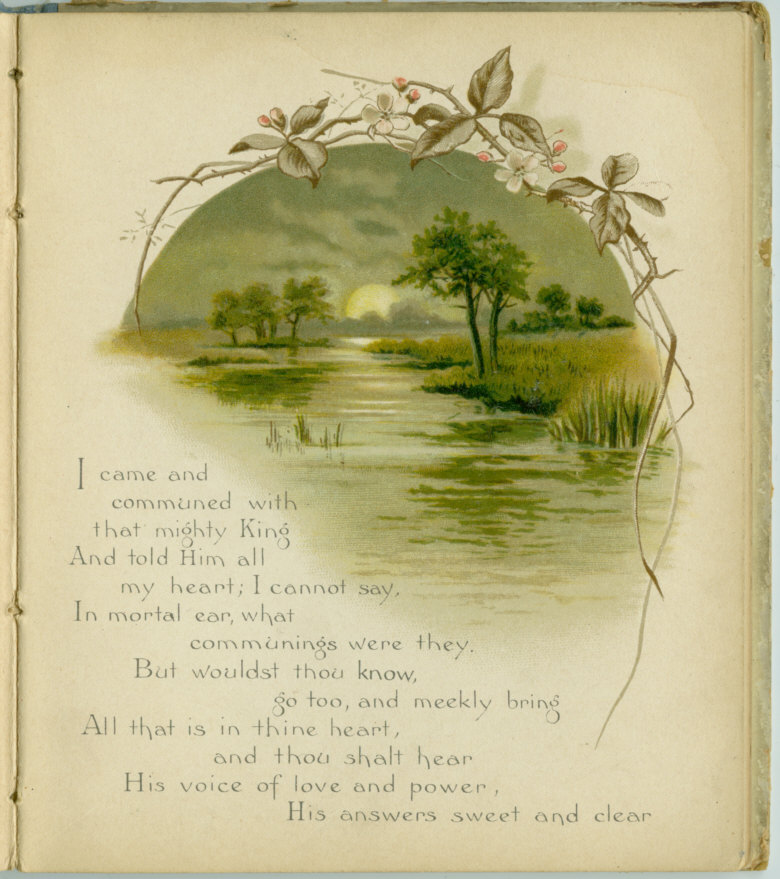 I came and
communed with
that mighty King
And told Him all
my heart; I cannot say,
In mortal ear, what
communings were they.
But wouldst thou know,
go too, and meekly bring
All that is in thine heart,
and thou shalt hear
His voice of love and power,
His answers sweet and clear